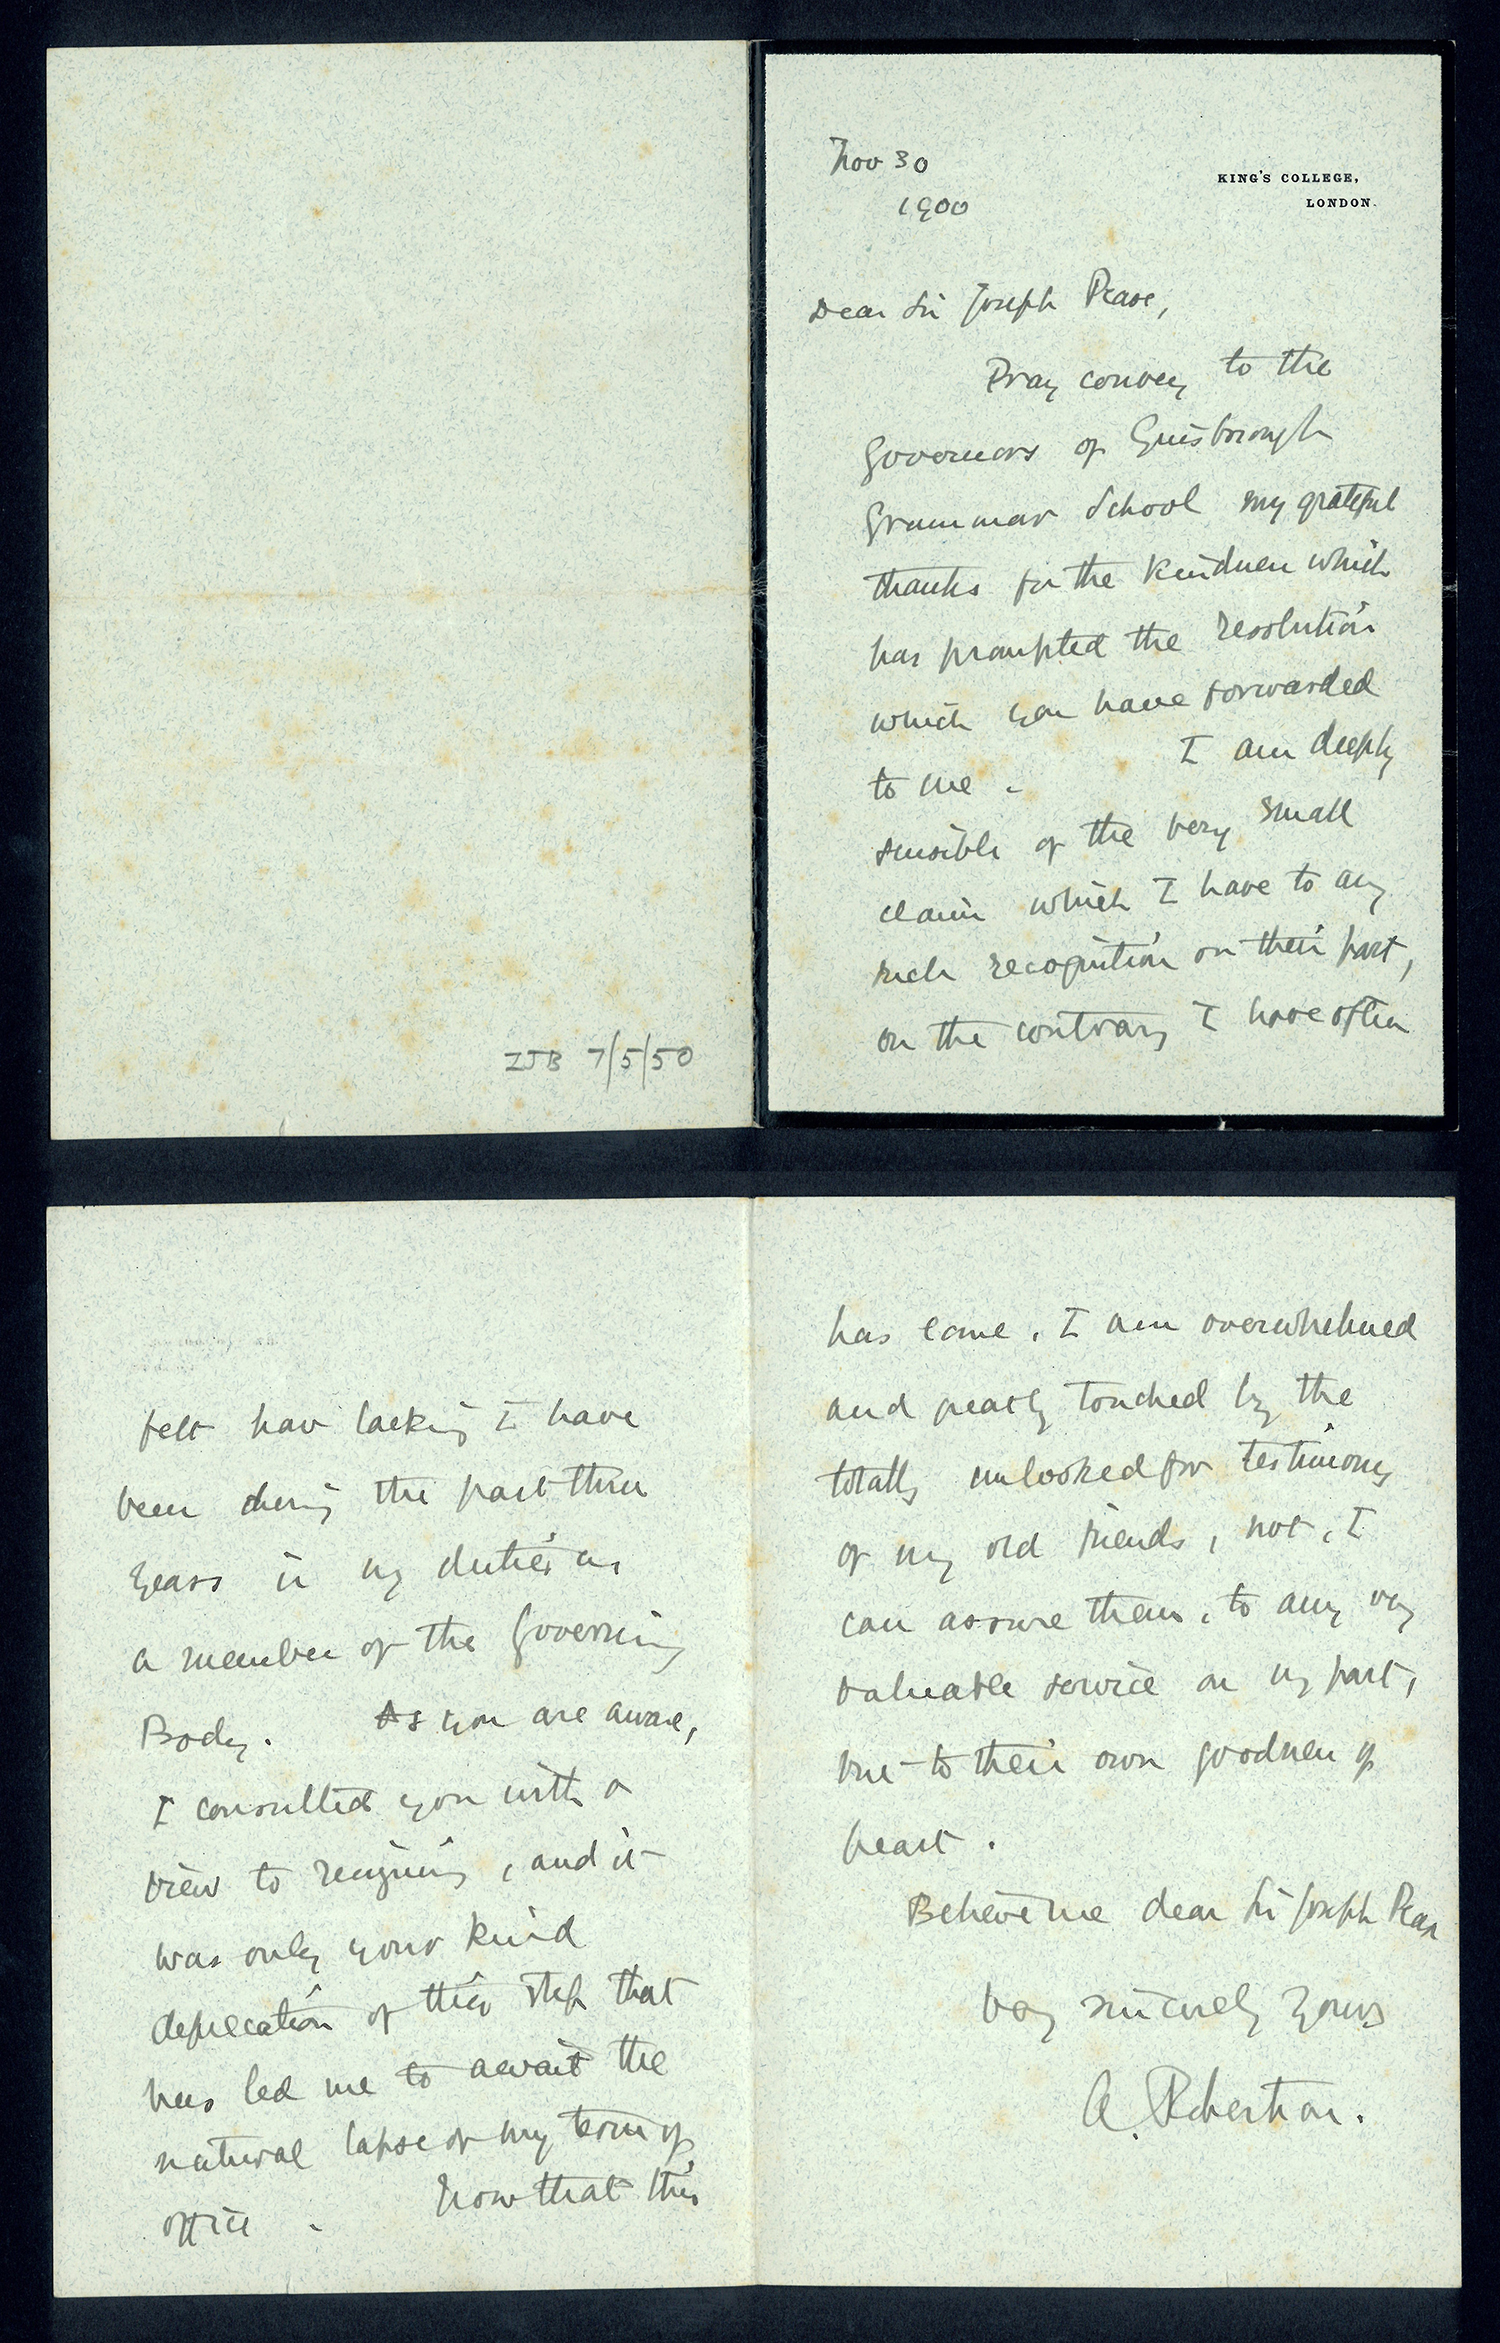 Nov 30
1900
KING'S COLLEGE,
LONDON.
Dear Sir Joseph Pease,
Pray convey to the
Governors of Guisborough
Grammar School my grateful
thanks for the kindness which
has prompted the resolution
which you have forwarded
to me. I am deeply
sensible of the very small
claim which I have to any
such recognition on their part,
on the contrary I have often
ZJB 7/5/50
felt how lacking I have
been during the past three
years in my duties as
a member of the Governing
Body. As you are aware,
I consulted you with a
view to resigning, and it
was only your kind
deprecation of this step that
has led me to await the
natural lapse of my term of
office. Now that this
has come, I am overwhelmed
and greatly touched by the
totally unlooked for testimony
of my old friends, not, I
can assure them, to any very
valuable service on my part,
but to their own goodness of
heart.
Believe me dear Sir Joseph Pease
very sincerely yours
A. Robertson.